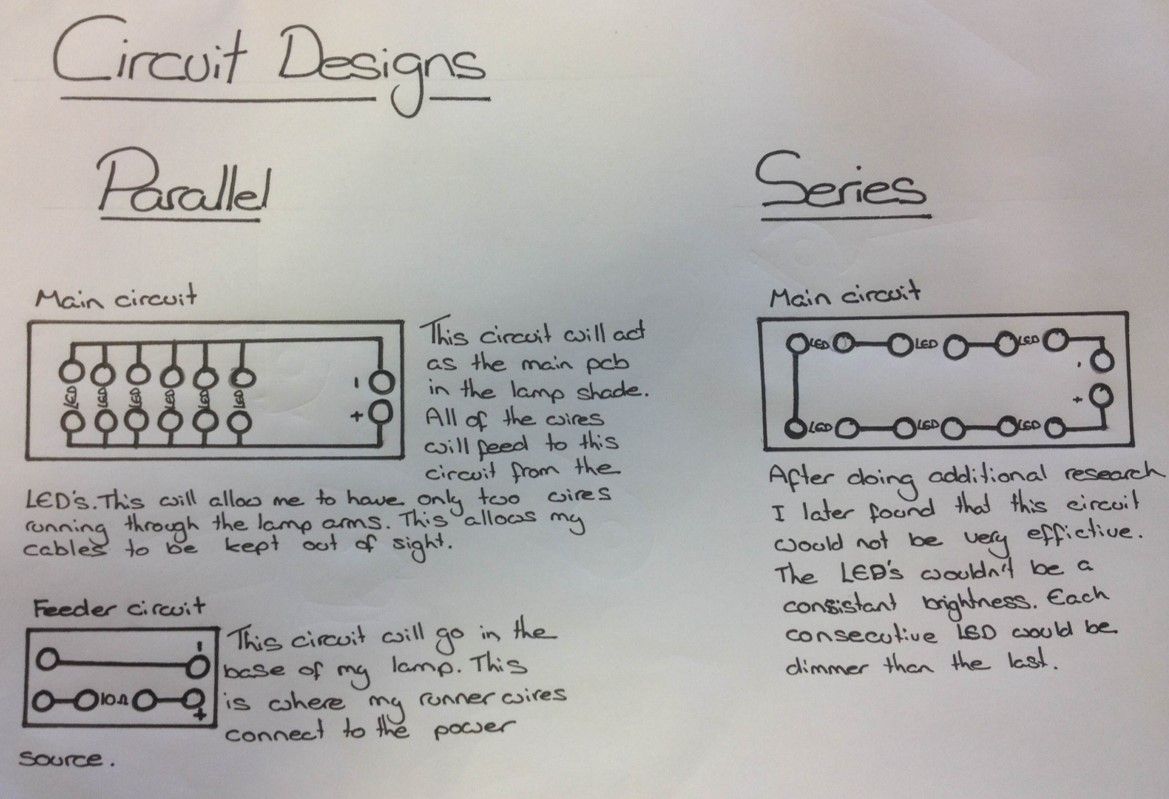 Circuit Designs
Parallel
Main circuit
LED LED LED LED LED LED
-
+
This circuit will act
as the main pcb
in the lamp shade.
All of the wires
will feed to this
circuit from the
LED's. This will allow me to have only two wires
running through the lamp arms. This allows my
cables to be kept out of sight.
Feeder circuit
-
10Ω
+
This circuit will go in the
base of my lamp. This
is where my runner wires
connect to the power
source.
Series
Main circuit
LED LED LED
-
+
LED LED LED
After doing additional research
I later found that this circuit
would not be very effictive.
The LED's wouldn't be a
consistant brightness. Each
consecutive LED would be
dimmer than the last.